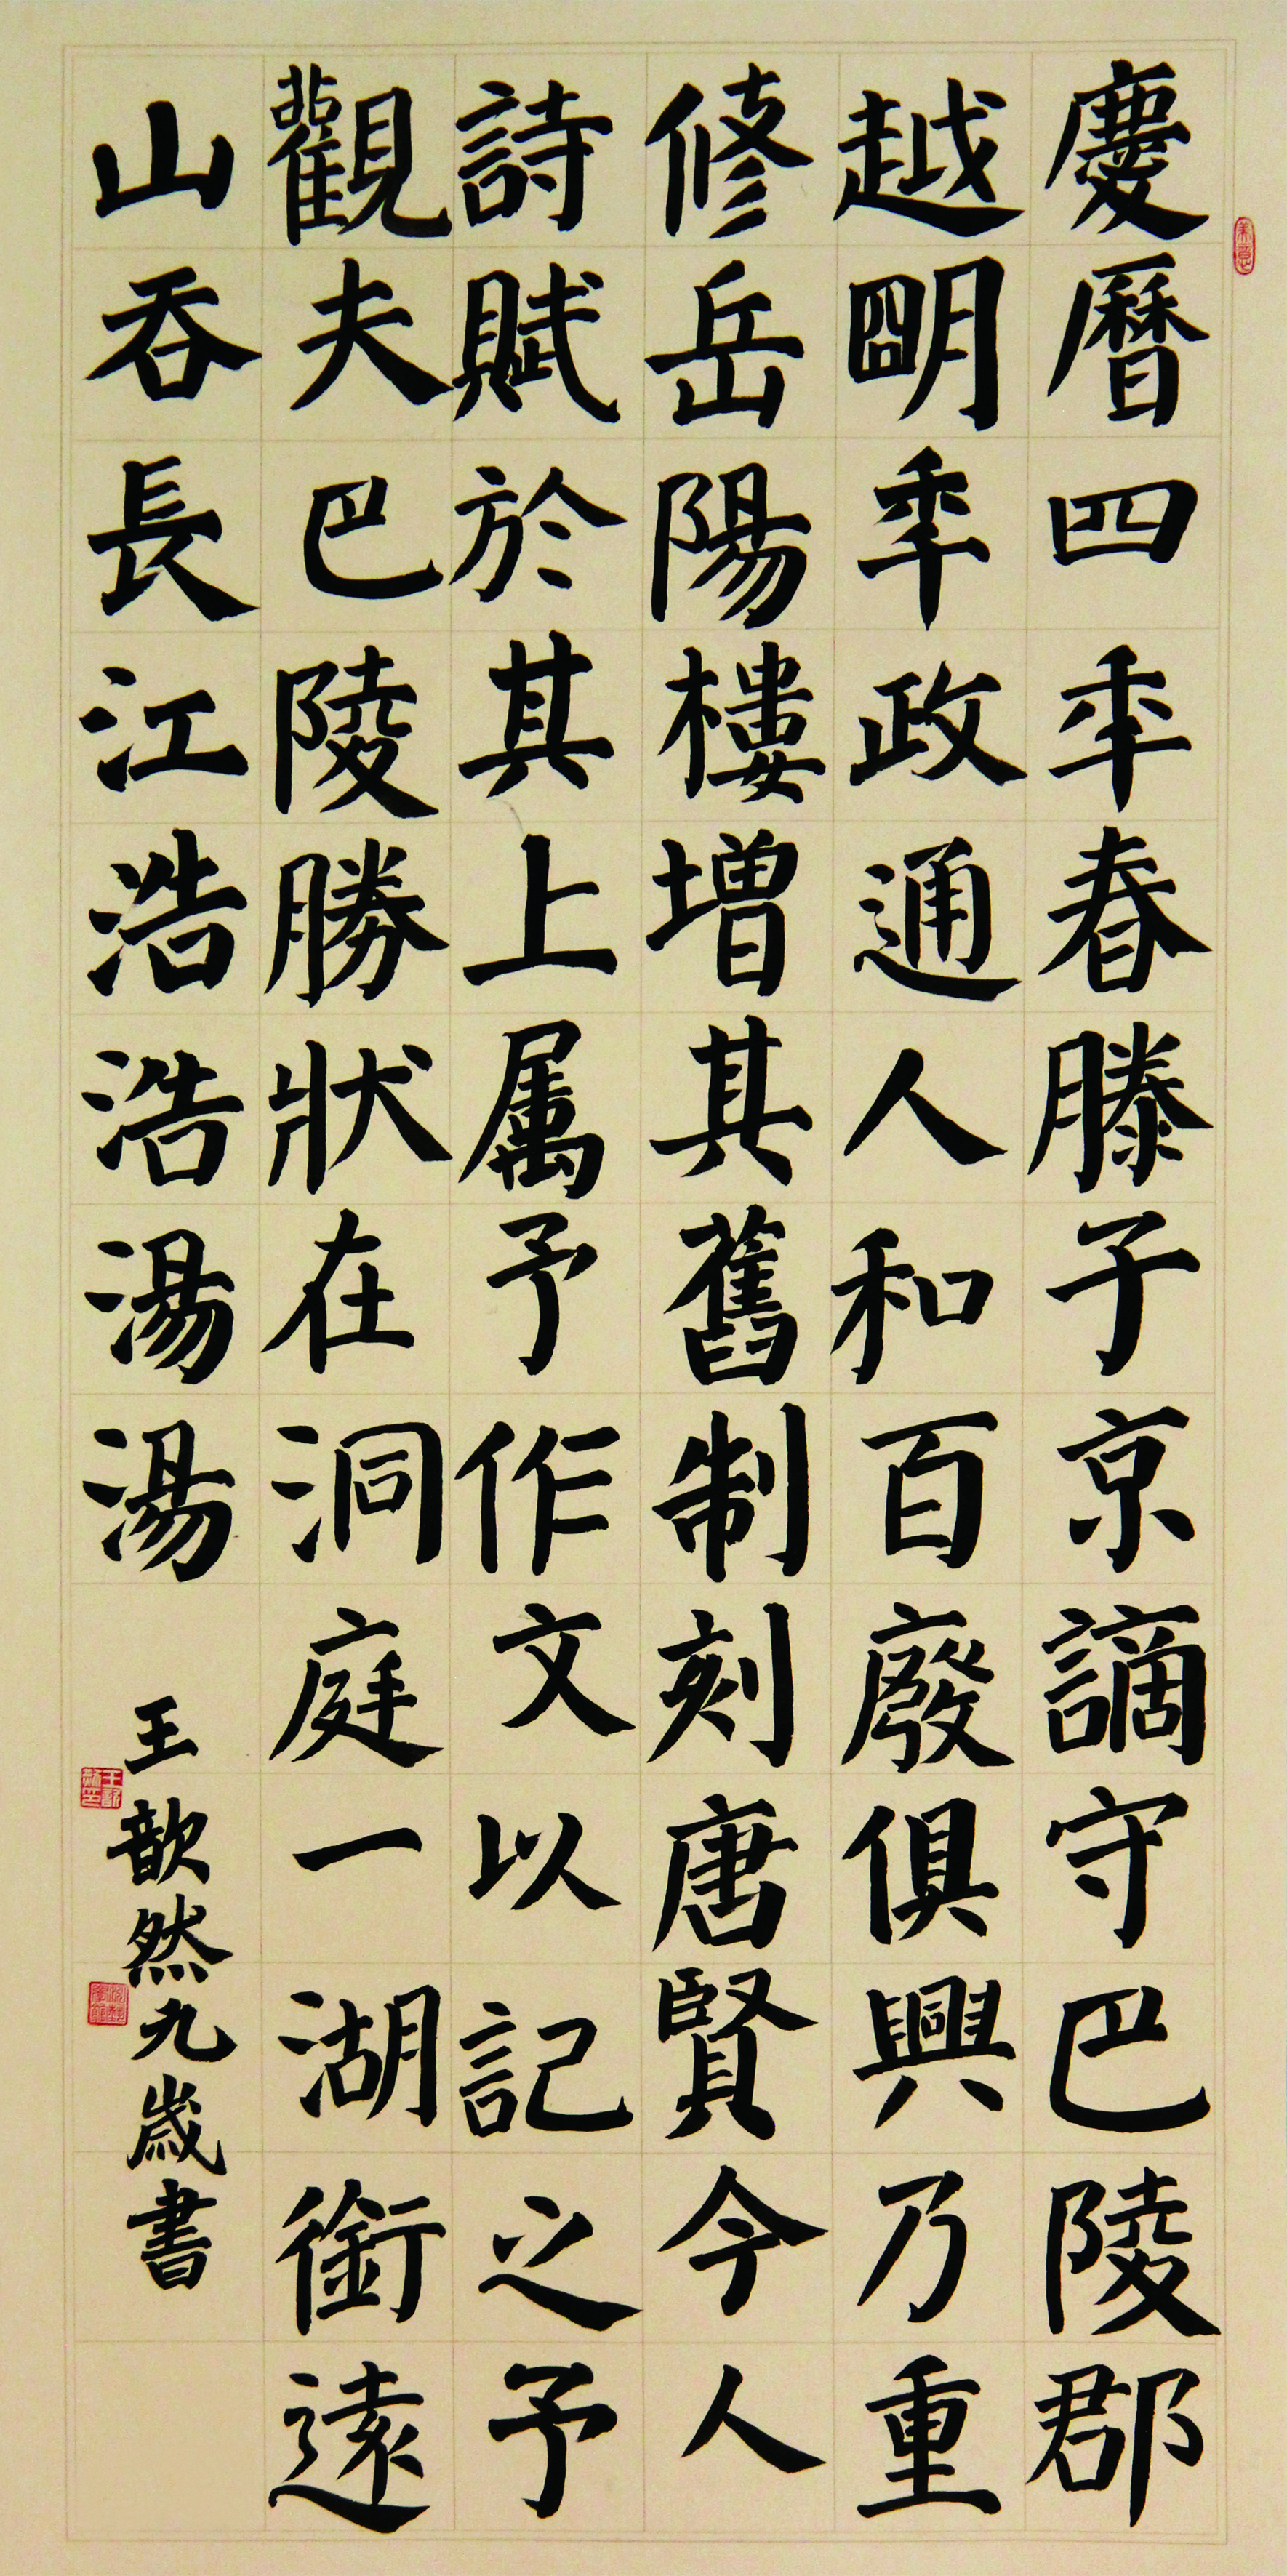 慶曆四秊春滕子京謫守巴陵郡
越明秊政通人和百廢俱興乃重
修岳陽樓增其舊制刻唐賢今人
詩賦於其上属予作文以記之予
觀夫巴陵勝狀在洞庭一湖銜遠
山吞長江浩浩湯湯
王歆然九歲書